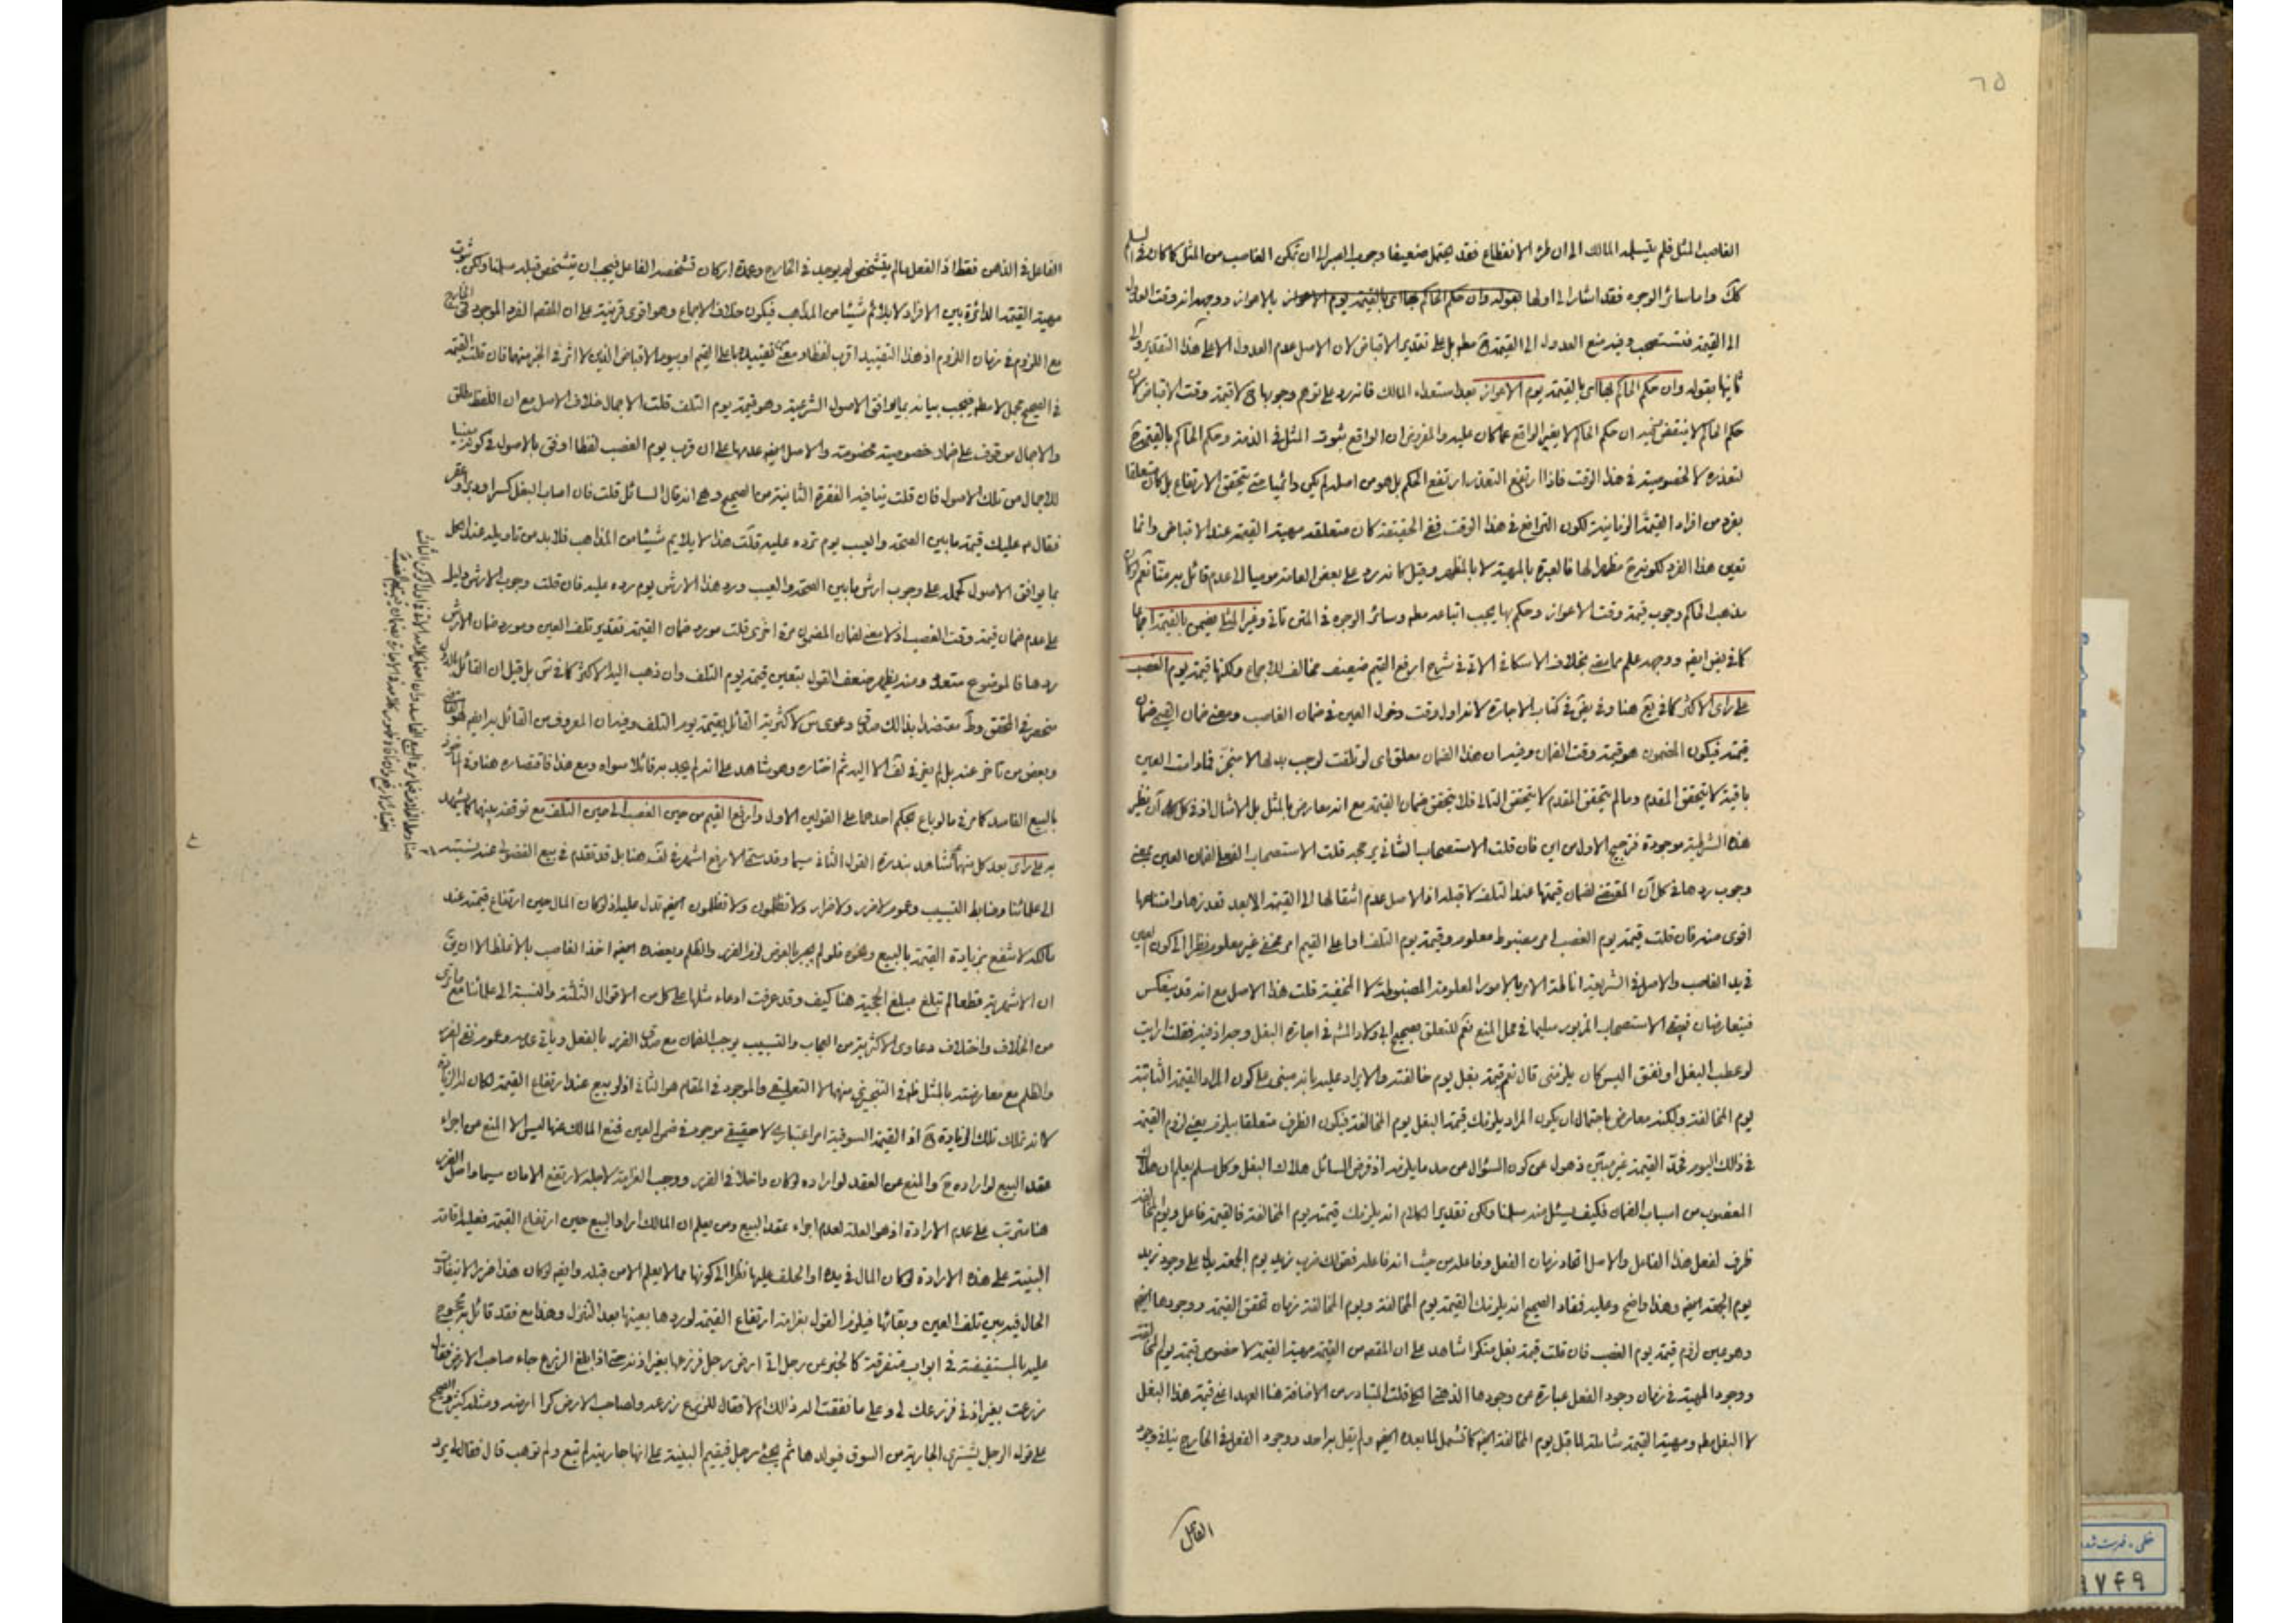 ٦٥
الغاصب المثل فلم يتسلمه المالك الى ان طرء الانقطاع فقد يحتمل ضعيفا وجوب الصبر الى ان تمكن الغاصب من المثل كما كان في السلم
كك واما سائر الوجوه فقد اشار الى اولها بقوله وان حكم الحاكم بها اى بالقيمة يوم الاعواز بالاعواز ووجهه انه وقت العدول
الى القيمة فتستصحب وفيه منع العدول الى القيمة ح مطم بل على تقدير الاقباض لان الاصل عدم العدول الا على هذا التقدير والى
ثانيها بقوله وان حكم الحاكم بها اى بالقيمة يوم الاعواز بعد استعداء المالك فانه رد على توهم وجوبها ح لا قيمة وقت الاقباض لان
حكم الحاكم لا ينتقض وفيه ان حكم الحاكم لا يغير الواقع عما كان عليه والمفروض ان الواقع ثبوت المثل في الذمة وحكم الحاكم بالقيمة ح
لتعذره لا لخصوصية في هذا الوقت فاذا ارتفع التعذر ارتفع الحكم بل هو من اصله لم يكن دائميا حتى يتحقق الارتفاع بل كان متعلقا
بفرد من افراد القيمة الزمانية لكون الترافع في هذا الوقت ففي الحقيقة كان متعلقه مهية القيمة عند الاقباض وانما
تعين هذا الفرد لكونه ح مظهرا لها فالعبرة بالمهية لا بالمظهر وقيل كانه رد على بعض العامة موميا الى عدم قائل به منا نعم لو كان
مذهب الحاكم وجوب قيمة وقت الاعواز وحكم بها يجب اتباعه مطم وسائر الوجوه في المتن تاتي وغير المثلى يضمن بالقيمة اجماعا
كما في يض ايضم ووجهه علم مما مضى بخلاف الاسكافي الاتي في شرح ارفع القيم ضعيف مخالف للاجماع ولكنها قيمة يوم الغصب
على راى الاكثر كما في يع هنا وفي يض في كتاب الاجارة لانه اول وقت دخول العين في ضمان الغاصب ومعنى ضمان القيمى ضمان
قيمته فيكون المضمون هو قيمة وقت الضمان وفيه ان هذا الضمان معلق اى لو تلفت لوجب بدلها لا منجز فما دامت العين
باقية لا يتحقق المقدم وما لم يتحقق المقدم لا يتحقق التالى فلا يتحقق ضمان القيمة مع انه معارض بالمثل بل الامثال اذ في كل آن نظير
هذه الشرطية موجودة فترجيح الاول من اين فان قلت الاستصحاب الشانى يرجحه قلت الاستصحاب الفعلى لضمان العين بمعنى
وجوب ردها في كل آن المقتضى لضمان قيمتها عند التلف لا قبله اذ الاصل عدم انتقالها الى القيمة الا بعد تعذرها وامتناعها
اقوى منه فان قلت قيمة يوم الغصب امر مضبوط معلوم وقيمة يوم التلف او اعلى القيم امر مخفى غير معلوم نظرا الى كون العين
في يد الغاصب والاصل في الشريعة اناطة الامر بالامور المعلومة المضبوطة لا المخفية قلت هذا الاصل مع انه قد ينعكس
فيتعارضان فيبقى الاستصحاب المزبور سليما في محل المنع نعم للتعلق بصحيح ابي ولاد المشهور في اجارة البغل وجه اذ فيه فقلت ارايت
لو عطب البغل او نفق اليس كان يلزمنى قال نعم قيمة بغل يوم خالفته والايراد عليه بانه مبنى على كون المراد القيمة الثابتة
يوم المخالفة ولكنه معارض باحتمال ان يكون المراد يلزمك قيمة البغل يوم المخالفة فيكون الظرف متعلقا بيلزم يعنى لزوم القيمة
في ذلك اليوم فحد القيمة غير مبين ذهول عن كون السؤال من حد ما يلزمه اذ فرض السائل هلاك البغل وكل مسلم يعلم ان هلاك
المغصوب من اسباب الضمان فكيف يسئل عنه سلمنا ولكن تقدير الكلام انه يلزمك قيمته يوم المخالفة فالقيمة فاعل ويوم المخالفة
ظرف لفعل هذا الفاعل والاصل اتحاد زمان الفعل وفاعله من حيث انه فاعله فقولك ضرب زيد يوم الجمعة يدل على وجود زيد
يوم الجمعة ايضم وهذا واضح وعليه فمفاد الصحيح انه يلزمك القيمة يوم المخالفة ويوم المخالفة زمان تحقق القيمة ووجودها ايضم
وهو عين لزوم قيمة يوم الغصب فان قلت قيمة بغل منكرا شاهد على ان المقصود من القيمة مهية القيمة لا خصوص قيمة يوم المخالفة
ووجود المهية في زمان وجود الفعل عبارة عن وجودها الذهنى قلت المتبادر من الاضافة هنا العهد اعنى قيمة هذا البغل
لا البغل مطم ومهية القيمة شاملة لما قبل يوم المخالفة ايضم كما تشمل لما بعده ايضم ولم يقل به احد ووجود الفعل في الخارج ينافي وجود
الفاعل
الفاعل في الذهن فقط اذ الفعل ما لم يتشخص لم يوجد في الخارج وعمدة اركان تشخصه الفاعل فيجب ان يتشخص قبله سلمنا ولكن ثبوت
مهية القيمة الدائرة بين الافراد لا يلائم شيئا من المذاهب فيكون خلاف الاجماع وهو اقوى قرينة على ان المقصم الفرد الموجود في الخارج
مع اللزوم في زمان اللزوم اذ هذا التقييد اقرب لفظا ومعنى من تقييده باعلى القيم او بيوم الاقباض الذين لا اثر في الخبر منهما فان قلت القيمة
في الصحيح مجمل لا مطم فيجب بيانه بما يوافق الاصول الشرعية وهو قيمة يوم التلف قلت الاجمال خلاف الاصل مع ان اللفظ مطلق
والاجمال موقوف على ضماد خصوصية مخصوصة والاصل ايضم عدمها على ان قرب يوم الغصب لفظا اوفق بالاصول في كونه مبينا
للاجمال من تلك الاصول فان قلت ينافيه الفقرة الثانية من الصحيح وهى انه قال السائل قلت فان اصاب البغل كسر او دبر او عقر
فقال م عليك قيمة ما بين الصحة والعيب يوم ترده عليه قلت هذا لا يلايم شيئا من المذاهب فلا بد من تاويله عند الكل
بما يوافق الاصول كحمله على وجوب ارش ما بين الصحة والعيب ورد هذا الارش يوم رده عليه فان قلت وجوب الارش دليل
على عدم ضمان قيمة وقت الغصب اذ لا معنى لضمان المضمون مرة اخرى قلت مورد ضمان القيمة تقدير تلف العين ومورد ضمان الارش
ردها فالموضوع متعدد ومنه يظهر ضعف القول بتعين قيمة يوم التلف وان ذهب اليه الاكثر كما في س بل قيل ان القائل بالاول
منحصر في المحقق وط معتضدا بذلك صدق دعوى س لاكثرية القائل بقيمة يوم التلف وفيه ان المعروف من القائل به ايضم هو القاضى
وبعض من تاخر عنه بل لم يعز في لف الا اليه ثم اختاره وهو شاهد على انه لم يجد به قائلا سواه ومع هذا فاقتصاره هنا وفي الماخوذ
بالبيع الفاسد كما مر في ما لو باع بحكم احدهما على القولين الاول وارفع القيم من حين الغصب الى حين التلف مع توقفه بينهما كما يشهد
به على راى بعد كل منهما شاهد بندرة القول الثانى سيما وقد ستى الارفع اشهر في لف هنا بل قد تقدم في بيع الفضولى عنه نسبته
الى علمائنا وضابط التسبيب وعموم لا ضرر ولا ضرار ولا تظلمون ولا تظلمون ايضم تدل عليه اذ لو كان المال حين ارتفاع قيمته عند
مالكه لانتفع بزيادة القيمة بالبيع ونحوه فلو لم يجبر بالعوض لزم الضرر والظلم ويعضده ايضم اخذ الغاصب بالاغلظ الا ان يق
ان الاشهرية قطعا لم تبلغ مبلغ الحجية هنا كيف وقد عرفت ادعاء مثلها على كل من الاقوال الثلثة والنسبة الى علمائنا مع ما ترى
من الخلاف واختلاف دعاوى الاكثرية من العجاب والتسبيب يوجب الضمان مع صدق الضرر بالفعل وياتى عدمه وعموم نفى الضرر
والظلم مع معارضته بالمثل ظم في التنجيزى منهما لا التعليقى والموجود في المقام هو الثانى اذ لو بيع عند ارتفاع القيمة لكان له الزيادة
لا انه تملك تلك الزيادة ح اذ القيمة السوقية امر اعتبارى لا حقيقى موجود في ضمن العين فمنع المالك عنها ليس الا المنع من اجراء
عقد البيع لو اراده ح والمنع عن العقد لو اراده لو كان داخلا في الضرر ووجب الغرامة لاجله لارتفع الامان سيما واصل الضرر
هنا مترتب على عدم الارادة اذ هو العلة لعدم اجراء عقد البيع ومن يعلم ان المالك اراد البيع حين ارتفاع القيمة فعليه اقامة
البينة على هذه الارادة لو كان المال في يده او الحلف عليها نظرا الى كونها مما لا يعلم الا من قبله وايضم لو كان هذا ضررا لا يتفاوت
الحال فيه بين تلف العين وبقائها فيلزم القول بغرامة ارتفاع القيمة لو ردها بعينها بعد التنزل وهذا مع فقد قائل به محجوج
عليه بالمستفيضة في ابواب متفرقة كالخبر عن رجل اتى ارض رجل فزرعها بغير اذنه حتى اذا بلغ الزرع جاء صاحب الارض فقال
زرعت بغير اذنى فزرعك لى وعلى ما نفقت اله ذلك ام لا فقال للزارع زرعه ولصاحب الارض كرا ارضه ومثله كثير والصحيح
على قوله الرجل يشترى الجارية من السوق فيولدها ثم يجئ رجل فيقيم البينة على انها جاريته لم تبع ولم توهب قال فقال لى يرد
خطى - فهرست شده
۹۷۴۹